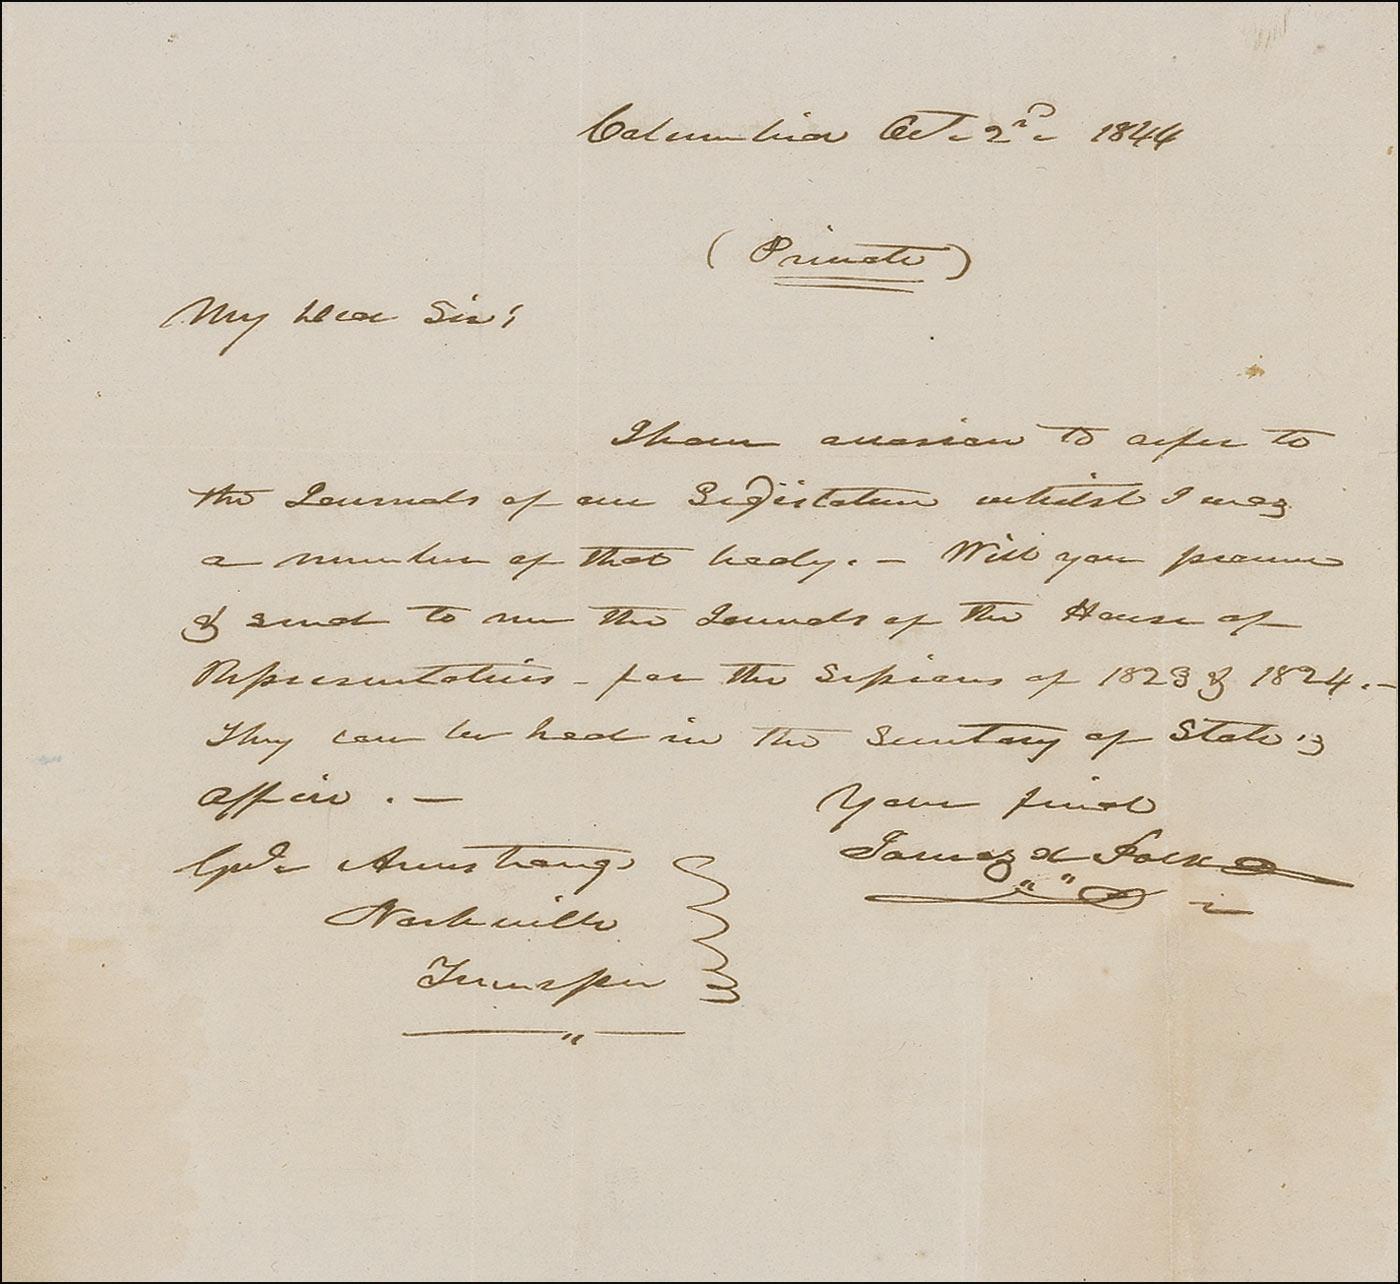 Columbia Oct. 2nd. 1844
(Private)
My Dear Sir;
I have occasion to refer to
the Journals of our Legislature whilst I was
a member of that body. — Will you procure
& send to me the Journals of the House of
Representatives - for the Sessions of 1823 & 1824. —
They can be had in the Secretary of State's
office. —
Your friend
James K. Polk
Genl. Armstrong
Nashville
Tennessee